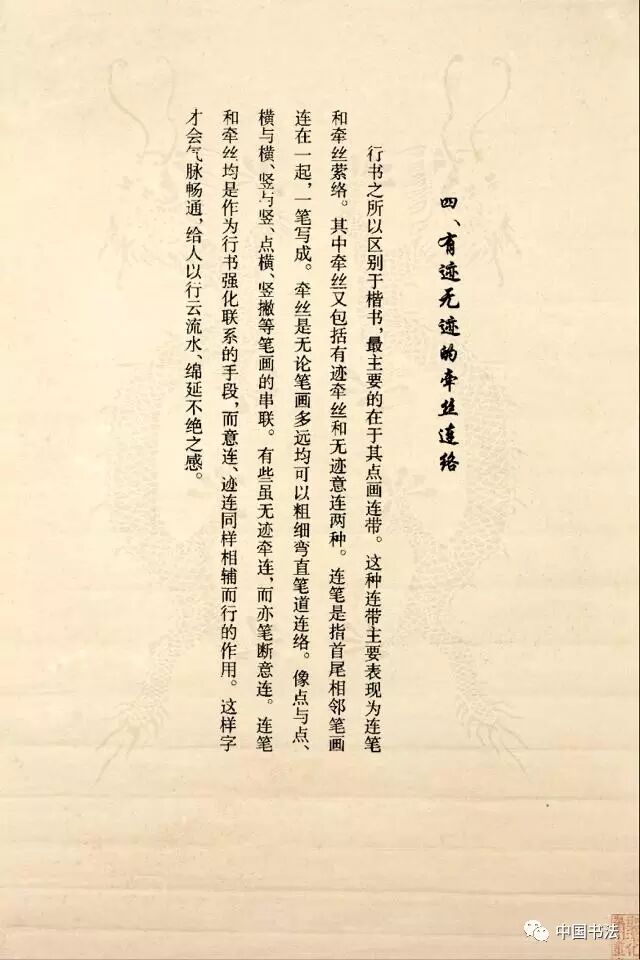 四、有迹无迹的牵丝连络
行书之所以区别于楷书，最主要的在于其点画连带。这种连带主要表现为连笔
和牵丝萦络。其中牵丝又包括有迹牵丝和无迹意连两种。连笔是指首尾相邻笔画
连在一起，一笔写成。牵丝是无论笔画多远均可以粗细弯直笔道连络。像点与点、
横与横、竖与竖、点横、竖撇等笔画的串联。有些虽无迹牵连，而亦笔断意连。连笔
和牵丝均是作为行书强化联系的手段，而意连、迹连同样相辅而行的作用。这样字
才会气脉畅通，给人以行云流水、绵延不绝之感。
中国书法